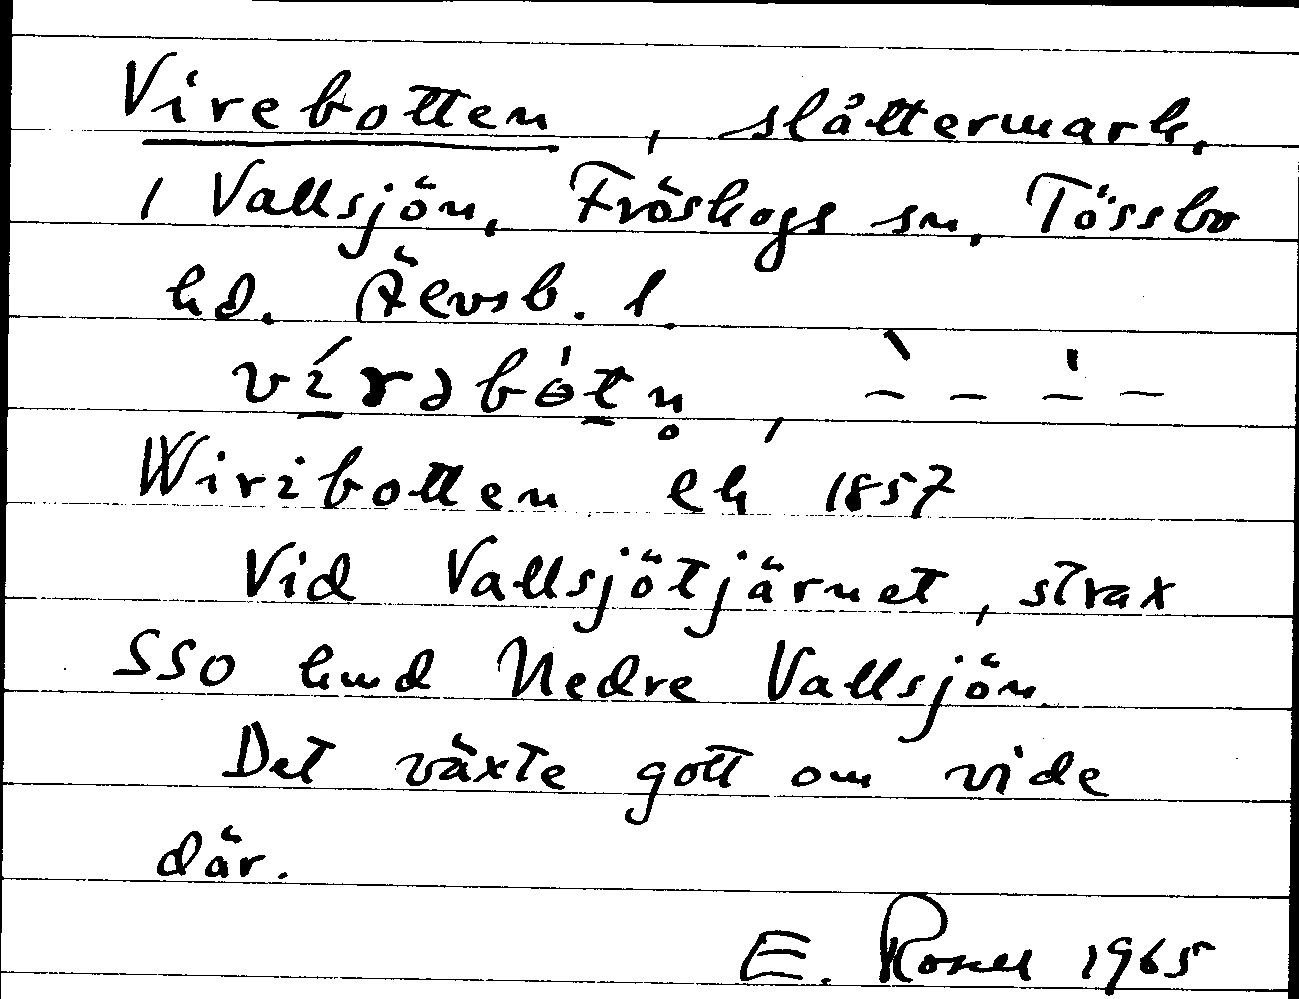 Virebotten, slåttermark,
1 Vallsjön, Fröskogs sn, Tössbo
hd. Älvsb. l.
Wiribotten ek 1857
Vid Vallsjötjärnet, strax
SSO Nedre Vallsjön.
Det växte gott om vide
där.
E. 1965